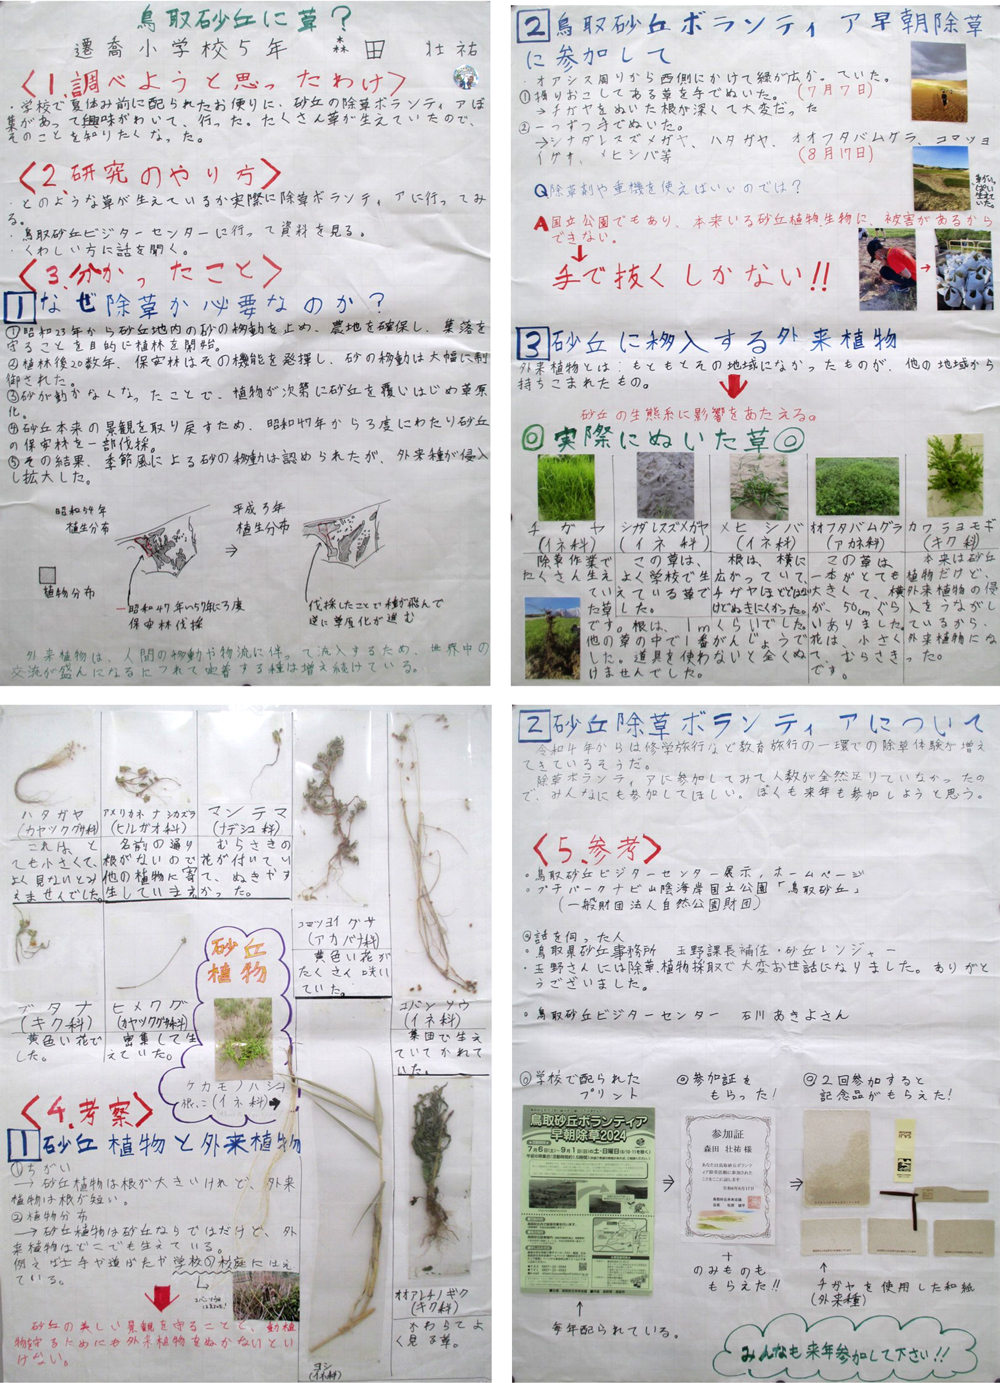 鳥取砂丘に草?
遷喬小学校5年 森田 壮祐
〈1.調べようと思ったわけ〉
・学校で夏休み前に配られたお便りに、砂丘の除草ボランティアぼ
集があって興味がわいて、行った。たくさん草が生えていたので、
そのことを知りたくなった。
〈2.研究のやり方〉
・どのような草が生えているか実際に除草ボランティアに行ってみ
る。
・鳥取砂丘ビジターセンターに行って資料を見る。
・くわしい方に話を聞く。
〈3.分かったこと〉
1なぜ除草が必要なのか?
①昭和23年から砂丘地内の砂の移動を止め、農地を確保し、集落を
守ることを目的に植林を開始。
②植林後20数年、保安林はその機能を発揮し、砂の移動は大幅に制
御された。
③砂が動かなくなったことで、植物が次第に砂丘を覆いはじめ草原
化。
④砂丘本来の景観を取り戻すため、昭和47年から3度にわたり砂丘
の保安林を一部伐採。
⑤その結果、季節風による砂の移動は認められたが、外来種が侵入
し拡大した。
昭和54年
植生分布
平成3年
植生分布
⇒
植物分布
昭和47年、57年に3度
保安林伐採
伐採したことで種が飛んで
逆に草原化が進む
外来植物は、人間の移動や物流に伴って流入するため、世界中の
交流が盛んになるにつれて定着する種は増え続けている。
2鳥取砂丘ボランティア早朝除草
に参加して
・オアシス周りから西側にかけて緑が広がっていた。
①掘りおこしてある草を手でぬいた。(7月7日)
→チガヤをぬいた根が深くて大変だった
②一つずつ手でぬいた。
→シナダレスズメガヤ、ハタガヤ、オオフタバムグラ、コマツヨ
イグサ、メヒシバ等 (8月17日)
Q除草剤や重機を使えばいいのでは?
A国立公園でもあり、本来いる砂丘植物、生物に、被害があるから
できない。
手で抜くしかない!!
3砂丘に移入する外来植物
外来植物とは:もともとその地域になかったものが、他の地域から
持ちこまれたもの。
砂丘の生態系に影響をあたえる。
◎実際にぬいた草◎
チガヤ
(イネ科)
除草作業で
たくさん生え
ていた草
です。根は、1mくらいでした。
他の草の中で1番がんじょうで
した。道具を使わないと全くぬ
けませんでした。
シナダレスズメガヤ
(イネ科)
この草は、
よく学校で生
えている草で
した。
メヒシバ
(イネ科)
根は、横に
広がっていて、
チガヤほどでは
けどぬきにくかった。
オオフタバムグラ
(アカネ科)
この草は、
一本がとても
大きくて、横
が、50cmぐら
いありました。
花は、小さく
て、むらさき
です。
カワラヨモギ
(キク科)
本来は砂丘
植物だけど、
外来植物の侵
入をうながし
ているから、
外来植物にな
った。
ハタガヤ
(カヤツリグサ科)
これは、と
ても小さくて、
よく見ないとみ
えませんでした。
アメリカネナシカズラ
(ヒルガオ科)
名前の通り
根がないので
他の植物に寄
生しています
マンテマ
(ナデシコ科)
むらさきの
花が付いてい
て、ぬきやす
かった。
コマツヨイグサ
(アカバナ科)
黄色い花が
たくさん咲い
ていた。
ブタナ
(キク科)
黄色い花で
した。
ヒメクグ
(カヤツリグサ科)
密集して生
えていた。
砂丘
植物
ケカモノハシ
根っこ(イネ科)→
コバンソウ
(イネ科)
集団で生え
ていてかれて
いた。
〈4.考察〉
1砂丘植物と外来植物
①ちがい
→砂丘植物は根が大きいけれど、外来
植物は根が短い。
②植物分布
→砂丘植物は砂丘ならではだけど、外
来植物はどこでも生えている。
例えば土手や道ばたや学校の校庭にはえ
ている。
砂丘の美しい景観を守ることと、動植
物を守るためにも外来植物をぬかないとい
けない。
ヨシ
(イネ科)
オオアレチノギク
(キク科)
かわらでよ
く見る草。
2砂丘除草ボランティアについて
令和4年からは修学旅行など教育旅行の一環での除草体験が増え
てきているそうだ。
除草ボランティアに参加してみて人数が全然足りていなかったの
で、みんなにも参加してほしい。ぼくも来年も参加しようと思う。
〈5.参考〉
・鳥取砂丘ビジターセンター展示、ホームページ
・プチパークナビ山陰海岸国立公園「鳥取砂丘」
(一般財団法人自然公園財団)
◎話を伺った人
・鳥取県砂丘事務所 玉野課長補佐・砂丘レンジャー
・玉野さんには除草、植物採取で大変お世話になりました。ありがと
うございました。
・鳥取砂丘ビジターセンター 石川あきよさん
◎学校で配られた
プリント
鳥取砂丘ボランティア
早朝除草2024
毎年配られている。
◎参加証を
もらった!
参加証
森田 壮祐 様
+
のみものも
もらえた!!
◎2回参加すると
記念品がもらえた!
チガヤを使用した和紙
(外来種)
みんなも来年参加して下さい!!